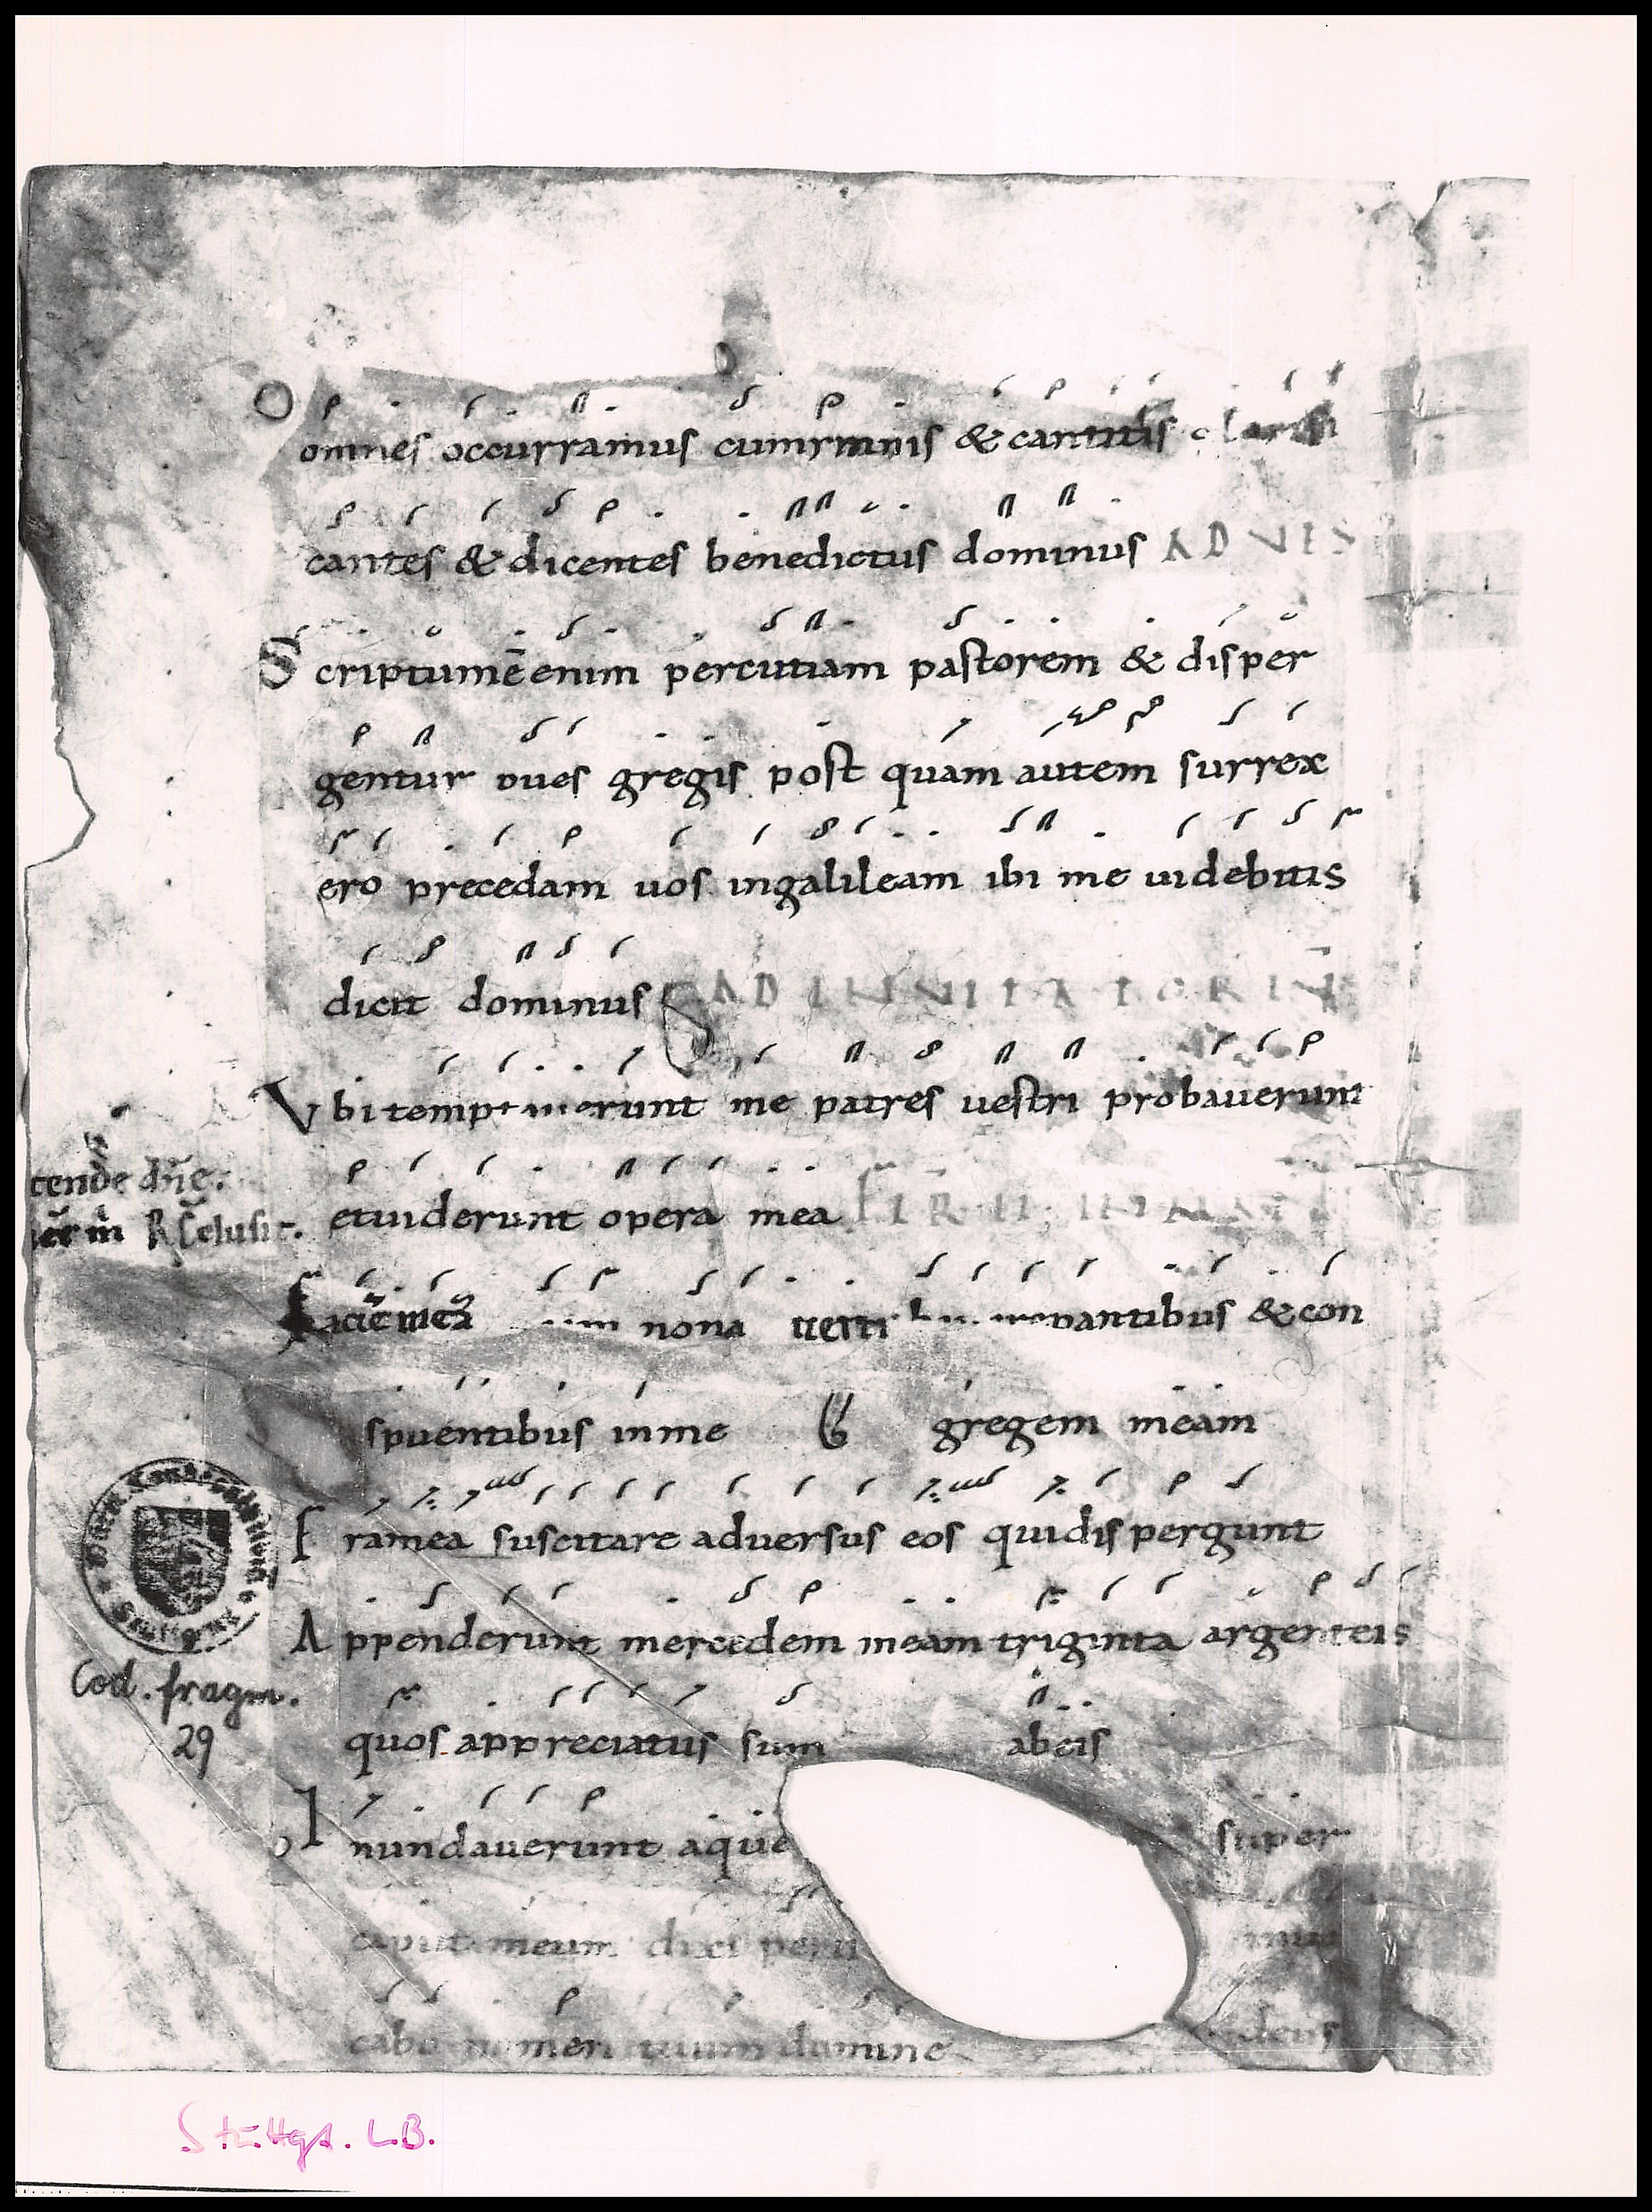 O
omnes occurramus cumymnis & canticis
cantes & dicentes benedictus dominus AD VES
Scriptum ē enim percutiam pastorem & disper
gentur oues gregis post quam autem surrex
ero precedam uos ingalileam ibi me uidebitis
dicit dominus AD INVITATORIŪ
Vbi temptauerunt me patres uestri probauerunt
tende dñe.
etuiderunt opera mea
Faciē meā nona uerti pantibus & con
spuentibus inme gregem meam
Framea suscitare aduersus eos quidispergunt
Appenderunt mercedem meam triginta argenteis
Cod. fragm.
29
quos appreciatus sum abeis
Inundauerunt aque super
caput meum dixi
nomen tuum domine
Stuttga. L.B.